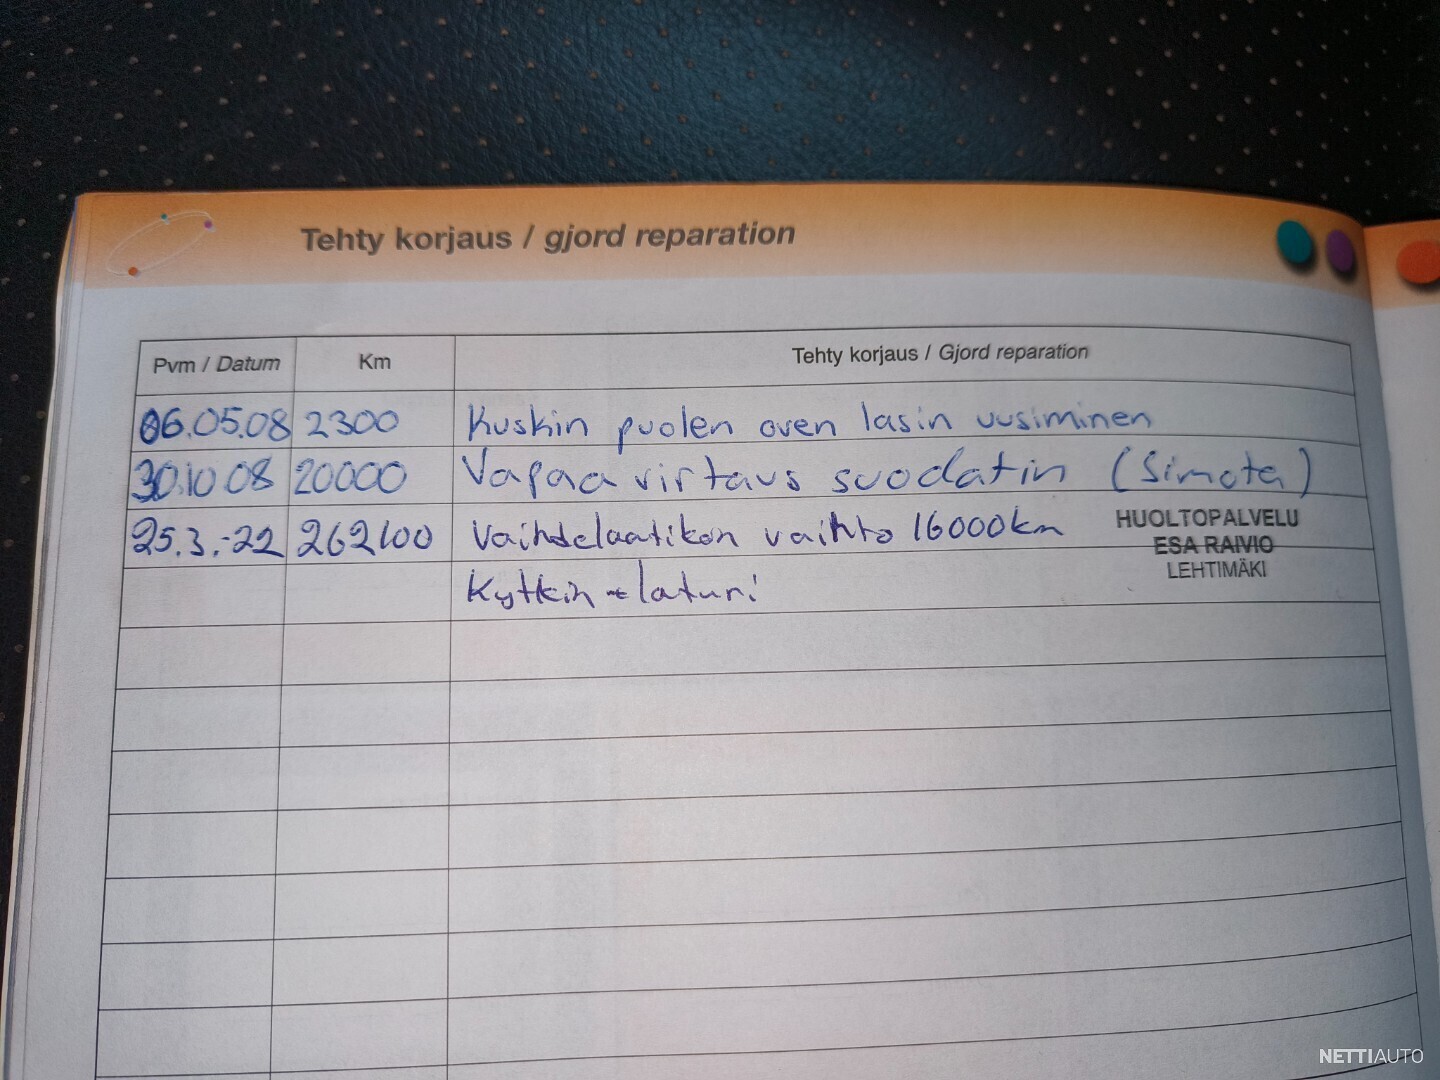 Tehty korjaus / gjord reparation
Pvm / Datum Km Tehty korjaus / Gjord reparation
06.05.08 2300 Kuskin puolen oven lasin uusiminen
30.10.08 20000 Vapaa virtaus suodatin (Simota)
25.3.-22 262100 Vaihdelaatikon vaihto 16000km
HUOLTOPALVELU
ESA RAIVIO
LEHTIMÄKI
Kytkin + laturi
NETTIAUTO